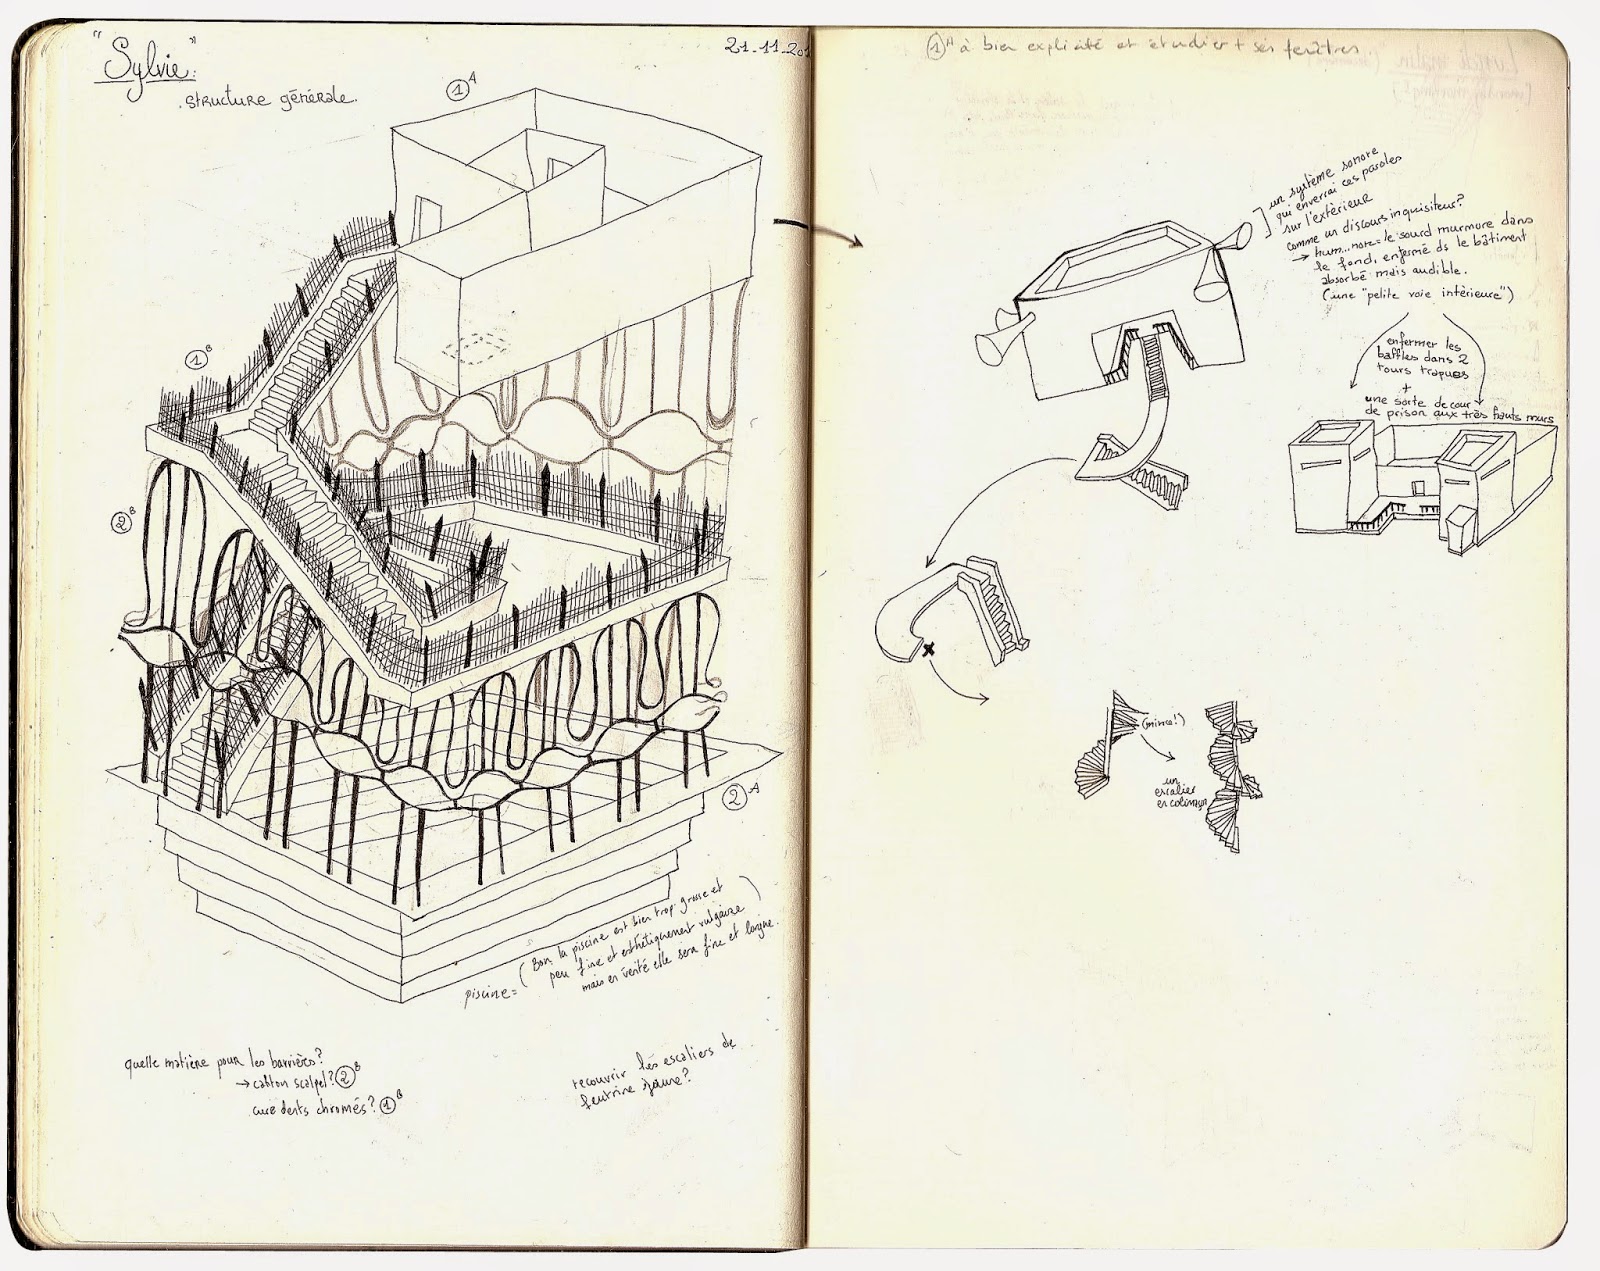 "Sylvie":
. structure générale.
21.11.20
1 A
1 B
2 B
2 A
piscine =
( Bon, la piscine est bien trop grosse et
peu fine et esthétiquement vulgaire
mais en vérité elle sera fine et longue. )
quelle matière pour les barrières?
→ carton scalpel? 2 B
cure dents chromés? 1 B
recouvrir les escaliers de
feutrine jaune?
1 A à bien explicité et étudier + ses fenêtres
Lundi matin
un système sonore
qui enverrai ces paroles
sur l'extérieur
comme un discours inquisiteur?
→ hum... non = le sourd murmure dans
le fond, enfermé ds le bâtiment
absorbé mais audible.
(une "petite voie intérieure")
enfermer les
baffles dans 2
tours trapues
+
une sorte de cour
de prison aux très hauts murs
(mince!)
un
escalier
en colimaçon